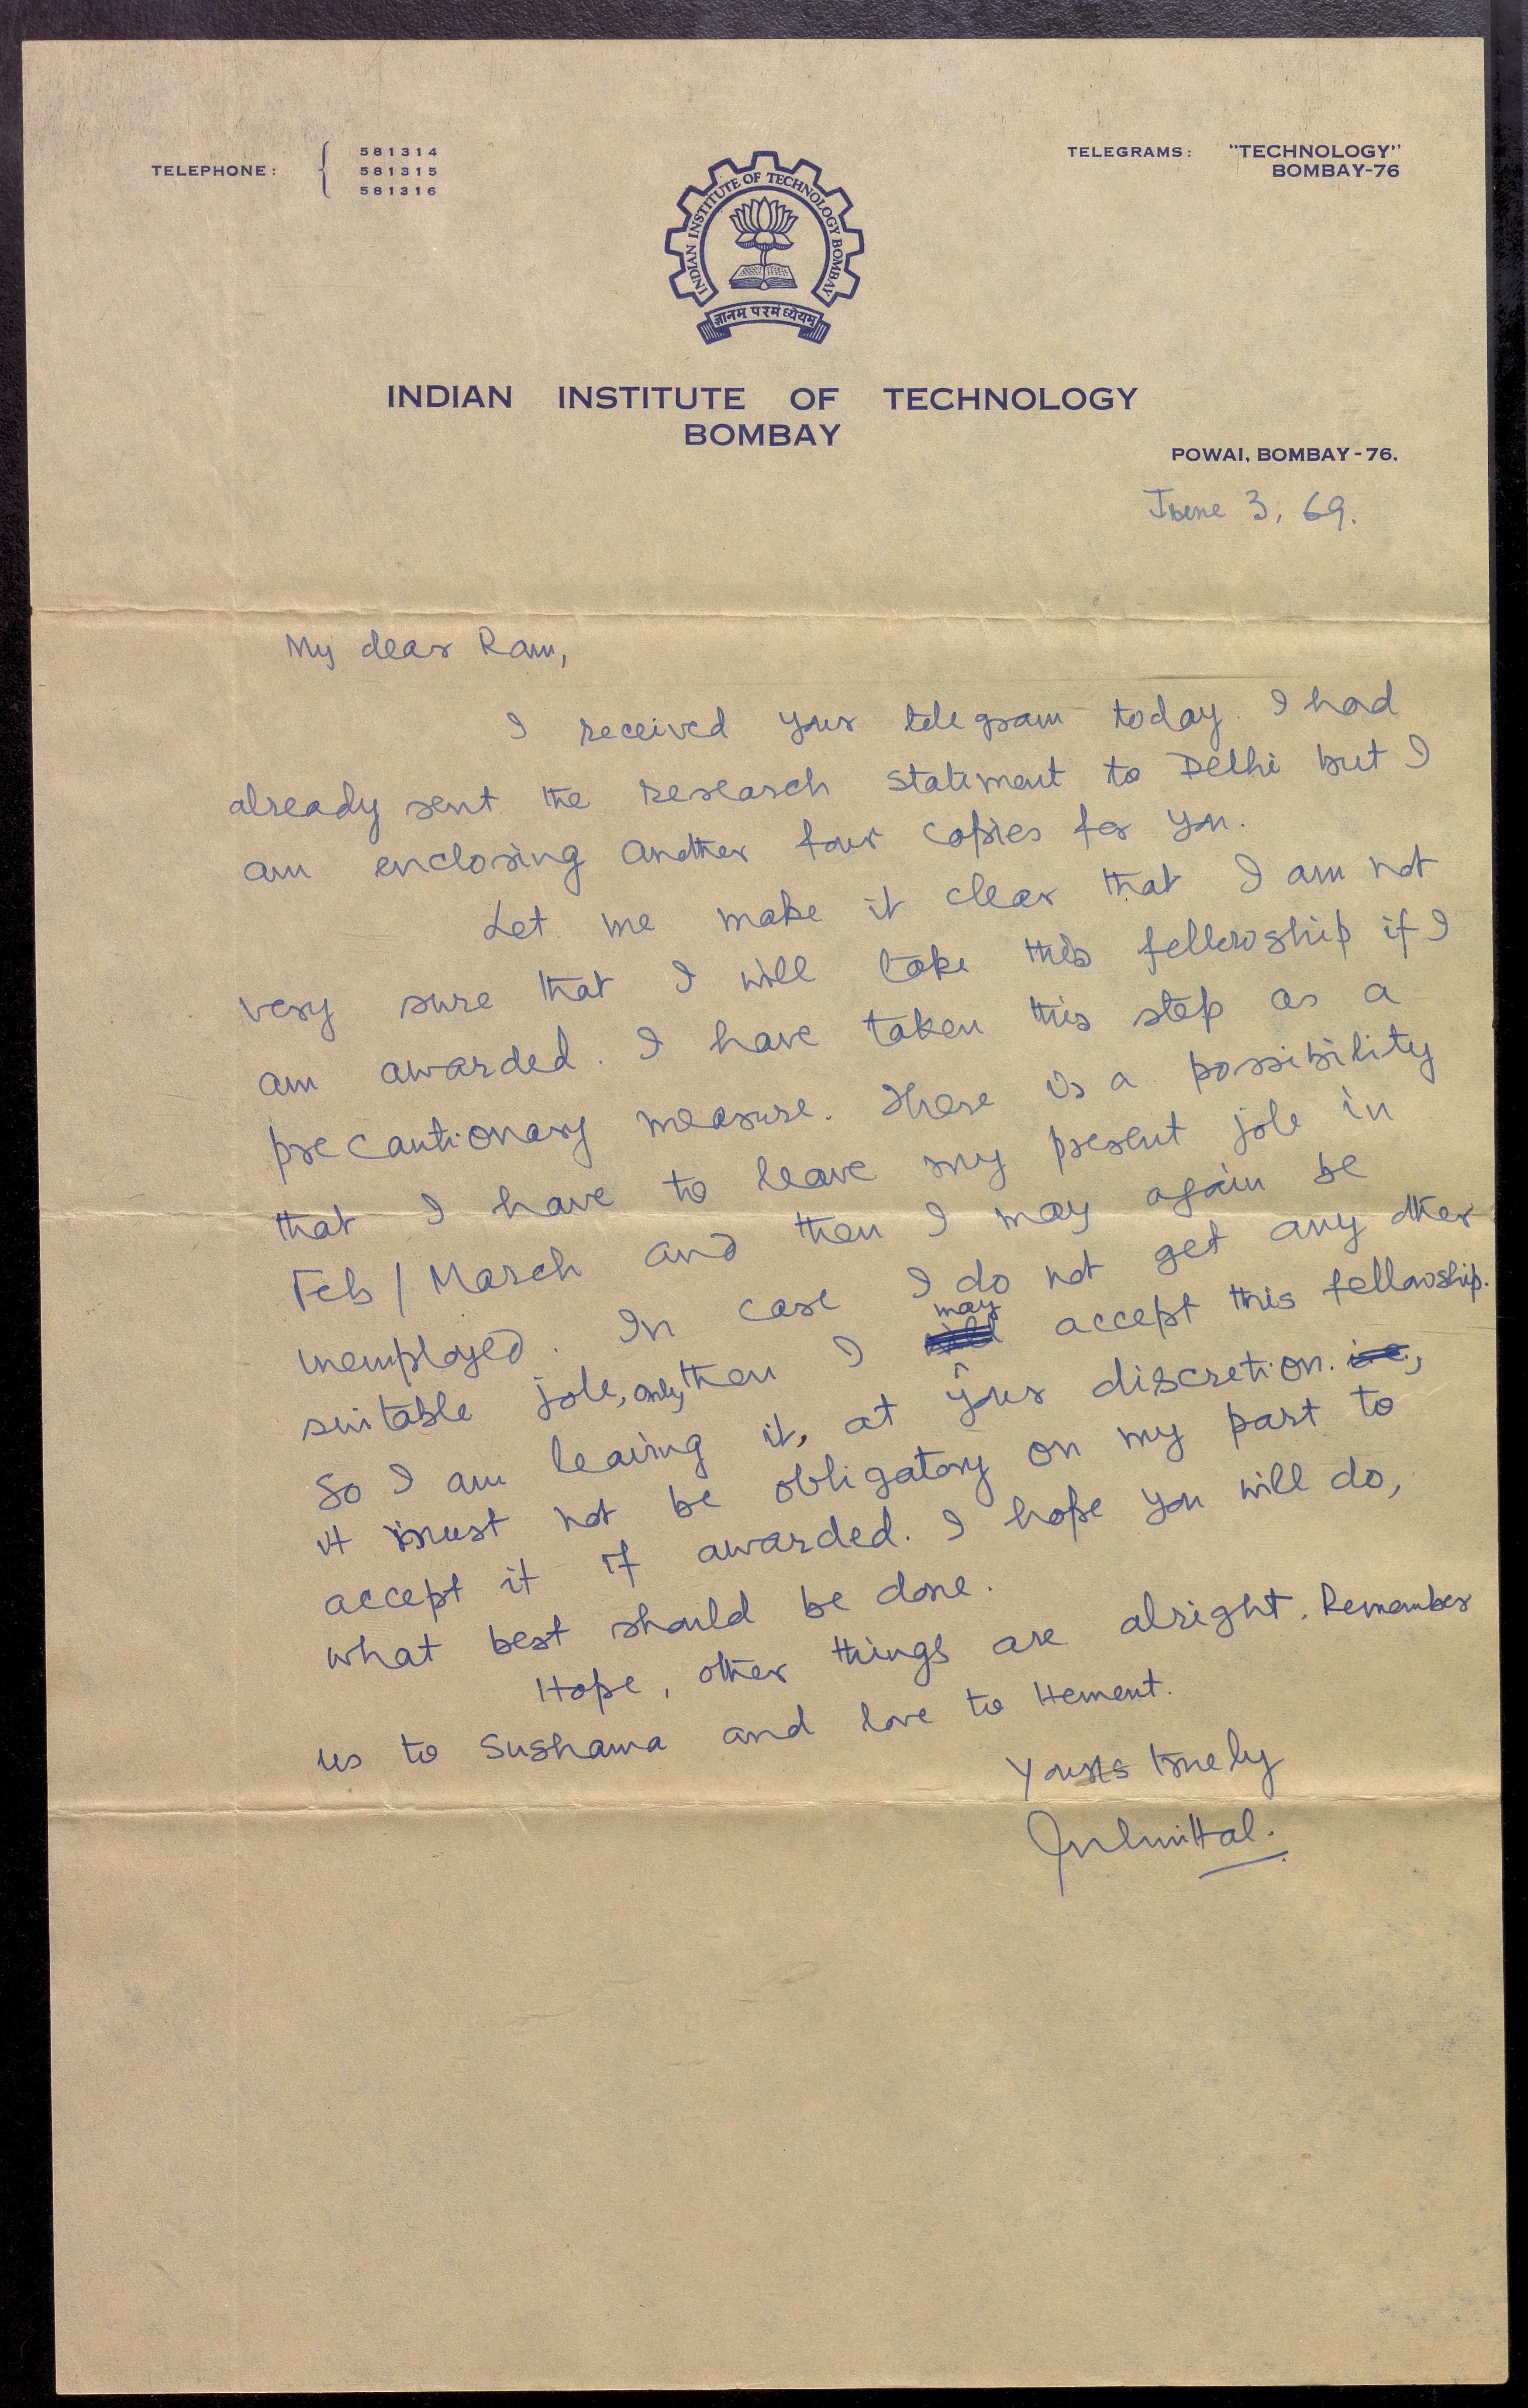 TELEPHONE : { 581314
581315
581316
TELEGRAMS : "TECHNOLOGY"
BOMBAY-76
INDIAN INSTITUTE OF TECHNOLOGY BOMBAY
ज्ञानम् परमं ध्येयम्
INDIAN INSTITUTE OF TECHNOLOGY
BOMBAY
POWAI, BOMBAY - 76.
June 3, 69.
My dear Ram,
I received your telegram today. I had
already sent the research statement to Delhi but I
am enclosing another four copies for you.
Let me make it clear that I am not
very sure that I will take this fellowship if I
am awarded. I have taken this step as a
precautionary measure. There is a possibility
that I have to leave my present job in
Feb / March and then I may again be
unemployed. In case I do not get any other
suitable job, only then I may accept this fellowship.
So I am leaving it, at your discretion. i.e.,
it must not be obligatory on my part to
accept it if awarded. I hope you will do,
what best should be done.
Hope, other things are alright. Remember
us to Sushama and love to Hement.
Yours truely